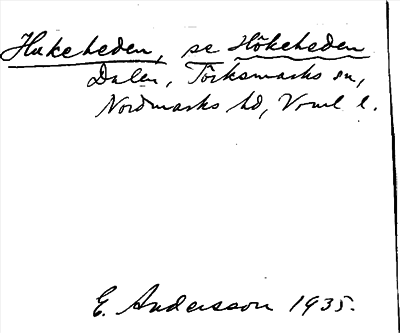 Hukeheden, se Hökeheden
Dalen, Töcksmarks sn,
Nordmarks hd, Vrml l.
E. Andersson 1935.